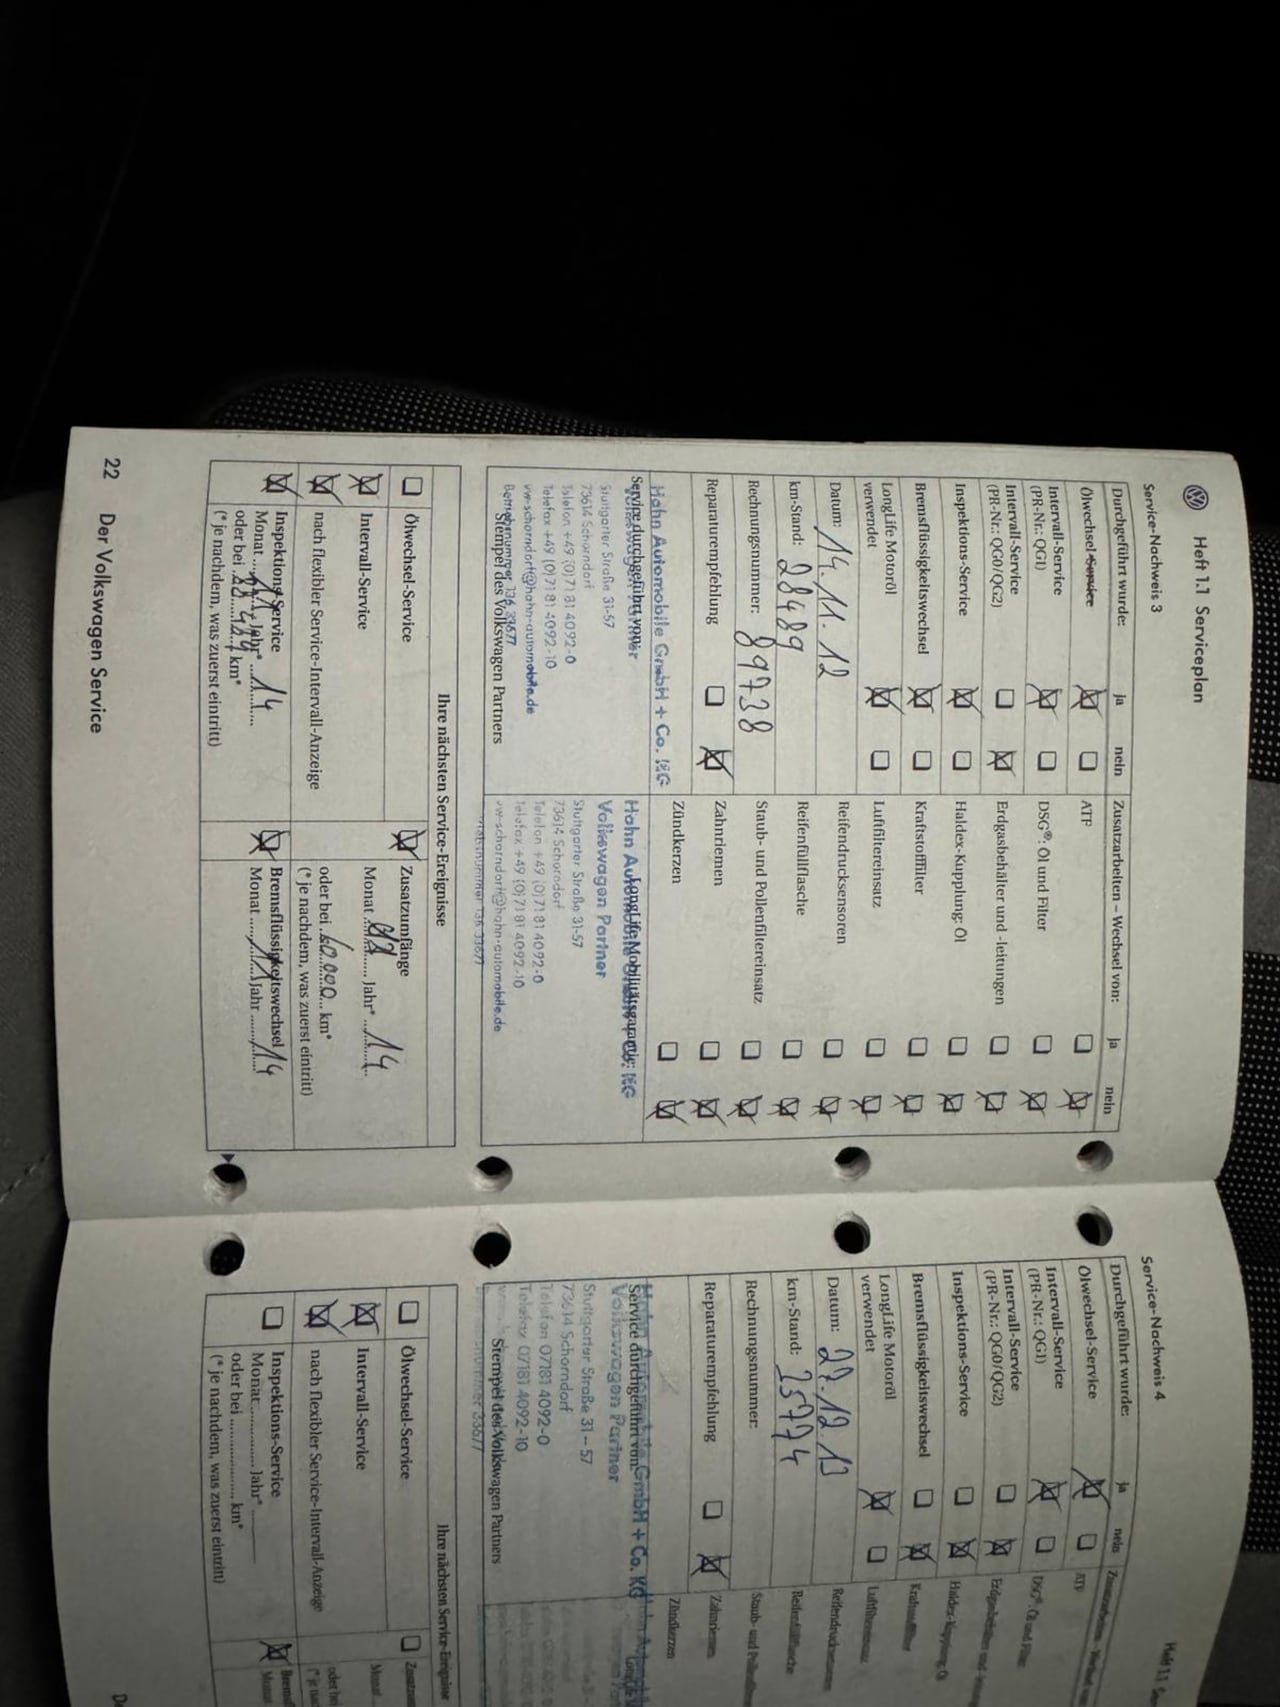 Heft 1.1 Serviceplan
Service-Nachweis 3
Durchgeführt wurde: ja nein
Ölwechsel-Service
Intervall-Service
(PR-Nr.: QG1)
Intervall-Service
(PR-Nr.: QG0/QG2)
Inspektions-Service
Bremsflüssigkeitswechsel
LongLife Motoröl
verwendet
Datum: 14.11.12
km-Stand: 28489
Rechnungsnummer: 89738
Reparaturempfehlung
Service durchgeführt von:
Hahn Automobile GmbH + Co. KG
Volkswagen Partner
Stuttgarter Straße 31-57
73614 Schorndorf
Telefon +49 (0)7181 4092-0
Telefax +49 (0)7181 4092-10
vw-schorndorf@hahn-automobile.de
Betriebsnummer 136 33677
Stempel des Volkswagen Partners
Zusatzarbeiten – Wechsel von: ja nein
ATF
DSG®: Öl und Filter
Erdgasbehälter und -leitungen
Haldex-Kupplung: Öl
Kraftstofffilter
Luftfiltereinsatz
Reifendrucksensoren
Reifenfüllflasche
Staub- und Pollenfiltereinsatz
Zahnriemen
Zündkerzen
LongLife Mobilitätsgarantie:
Hahn Automobile GmbH + Co. KG
Volkswagen Partner
Stuttgarter Straße 31-57
73614 Schorndorf
Telefon +49 (0)7181 4092-0
Telefax +49 (0)7181 4092-10
vw-schorndorf@hahn-automobile.de
Betriebsnummer 136 33677
Ihre nächsten Service-Ereignisse
Ölwechsel-Service
Intervall-Service
nach flexibler Service-Intervall-Anzeige
Inspektions-Service
Monat 11 Jahr* 14
oder bei km*
(* je nachdem, was zuerst eintritt)
Zusatzumfänge
Monat Jahr* 14
oder bei 60.000 km*
(* je nachdem, was zuerst eintritt)
Bremsflüssigkeitswechsel
Monat 11 Jahr 14
22 Der Volkswagen Service
Heft 1.1
Service-Nachweis 4
Durchgeführt wurde: ja nein
Ölwechsel-Service
Intervall-Service
(PR-Nr.: QG1)
Intervall-Service
(PR-Nr.: QG0/QG2)
Inspektions-Service
Bremsflüssigkeitswechsel
LongLife Motoröl
verwendet
Datum: 27.12.13
km-Stand: 35774
Rechnungsnummer:
Reparaturempfehlung
Service durchgeführt von:
Hahn Automobile GmbH + Co. KG
Volkswagen Partner
Stuttgarter Straße 31 – 57
73614 Schorndorf
Telefon 07181 4092-0
Telefax 07181 4092-10
Stempel des Volkswagen Partners
33677
Zusatzarbeiten – Wechsel von
ATF
DSG®: Öl und Filter
Erdgasbehälter und
Haldex-Kupplung: Öl
Kraftstofffilter
Luftfiltereinsatz
Reifendrucksensoren
Reifenfüllflasche
Staub- und
Zahnriemen
Zündkerzen
Ihre nächsten Service-Ereignisse
Ölwechsel-Service
Intervall-Service
nach flexibler Service-Intervall-Anzeige
Inspektions-Service
Monat Jahr*
oder bei km*
(* je nachdem, was zuerst eintritt)
Monat
oder bei
Monat